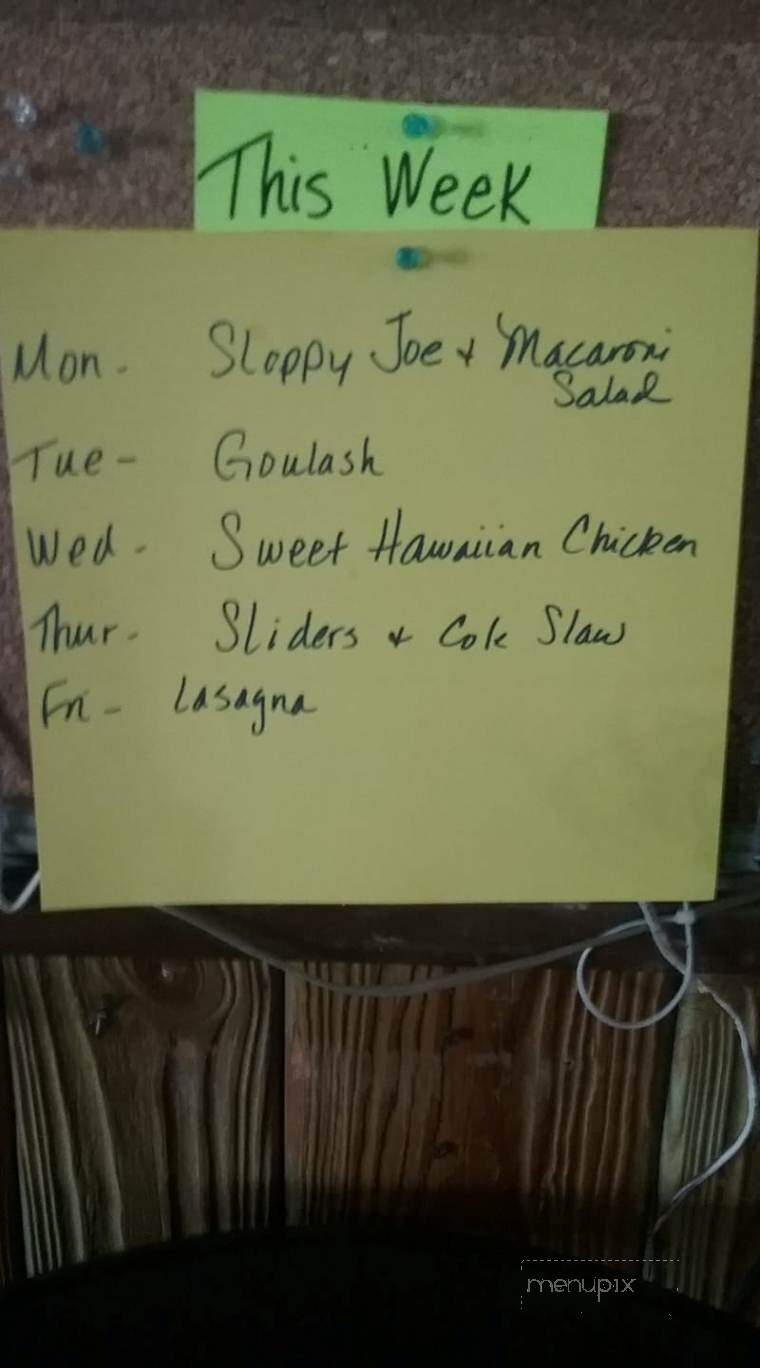 This Week
Mon. Sloppy Joe + Macaroni
Salad
Tue - Goulash
Wed - Sweet Hawaiian Chicken
Thur - Sliders + Cole Slaw
Fri - Lasagna
menupix